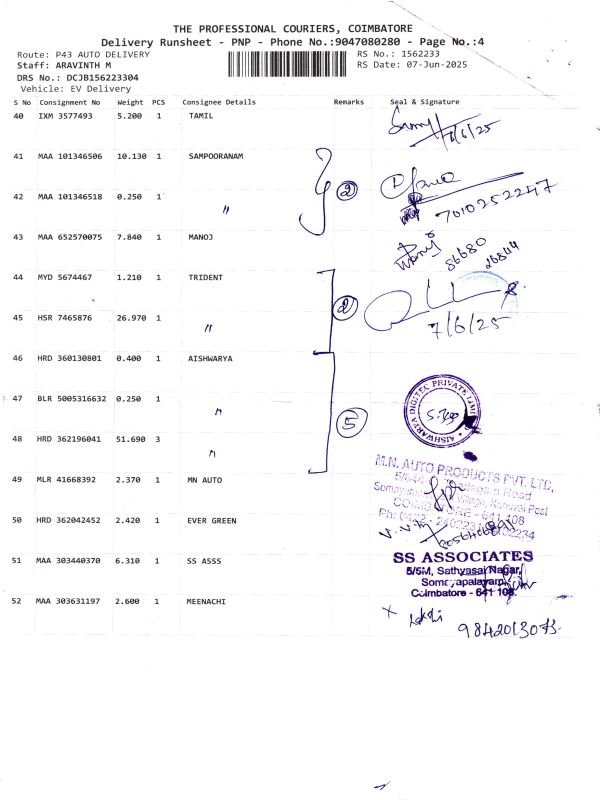 THE PROFESSIONAL COURIERS, COIMBATORE
Delivery Runsheet - PNP - Phone No.:9047080280 - Page No.:4
Route: P43 AUTO DELIVERY
RS No.: 1562233
Staff: ARAVINTH M
RS Date: 07-Jun-2025
DRS No.: DCJB156223304
Vehicle: EV Delivery
S No Consignment No Weight PCS Consignee Details Remarks Seal & Signature
40 IXM 3577493 5.200 1 TAMIL
7/6/25
41 MAA 101346506 10.130 1 SAMPOORANAM
2
42 MAA 101346518 0.250 1 "
7010252247
43 MAA 652570075 7.840 1 MANOJ
86680
26844
44 MYD 5674467 1.210 1 TRIDENT
2
45 HSR 7465876 26.970 1 "
7/6/25
46 HRD 360130801 0.400 1 AISHWARYA
AISHWARYA DIGITEC PRIVATE LIMI
47 BLR 5005316632 0.250 1 "
5
48 HRD 362196041 51.690 3 "
49 MLR 41668392 2.370 1 MN AUTO
M.N. AUTO PRODUCTS PVT. LTD.
Road
Post
641 108
50 HRD 362042452 2.420 1 EVER GREEN
51 MAA 303440370 6.310 1 SS ASSS
SS ASSOCIATES
5/5M, Sathyasai Nagar,
Somayapalayam,
Coimbatore - 641 108.
52 MAA 303631197 2.600 1 MEENACHI
9842013073